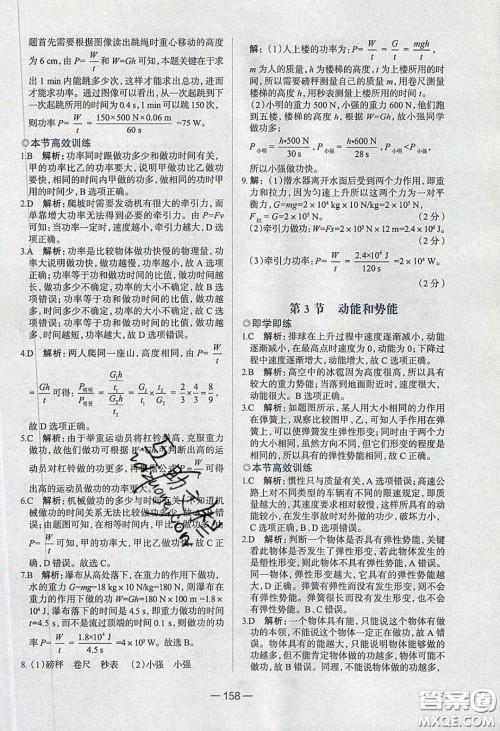 题首先需要根据图像读出跳绳时重心移动的高度
为6 cm,由 P=W/t 和W=Gh可知,本题关键在于求
出1 min内能跳多少次,这样才能求出总功,进而
求出功率。通过图像可以看出,从一次起跳到下
一次起跳所用的时间为0.4 s,1 min可以跳150次,
则功率P=W/t=150×500 N×0.06 m/60 s=75 W。
◎本节高效训练
1.B 解析:功率同时跟做功多少和做功时间有关,
甲的功率比乙的功率要大,说明甲做功比乙做功
要快,相同的时间内甲做的功多,或做相同的功时甲
用的时间少,B选项正确。
2.D 解析:爬坡时需要发动机有很大的牵引力,而
单靠增大功率无法得到必要的牵引力。由P=Fv
可知:当功率一定时,速度越小,牵引力越大,D选
项正确。
3.A 解析:功率是比较物体做功快慢的物理量,功率
大说明做功快,做功越慢,功率越小,A选项正确,C选
项错误;功率等于功和做功时间的比值,时间越
长,做功多少不确定,功率的大小不确定,故B选
项错误;功率等于功和做功时间的比值,做功越
多,时间越短,功率越大,故D选项错误。
4.D 解析:两人爬同一座山,高度相同,由 P=W/t
=Gh/t可得:
故D选项正确。
5.C 解析:由于举重运动员将杠铃举高,克服重力
做功,故他们做功可根据
出高的运动员做功的功率更大。
6.C 解析:机械做功的多
械做功的时间关系无法比较做功多少,A、B、D错
误;由图题可知,在相等时间内,甲比乙做功多,由
P=W/t=可知,甲的功率大,甲比乙做功快,故C正
确,D错误。
7.B 解析:瀑布从高处落下,在重力的作用下做功,
水的重力G=mg=18 kg×10 N/kg=180 N,则瀑布在
重力的作用下做的功W=Gh=180 N×100 m=1.8×
10⁴ J,瀑布落下的时间是4.5 s,即重力做功的时间
t=4.5 s,而不是流过顶端的时间0.1 s,则功的功
率为P=W/t=1.8×10⁴ J/4.5 s=4×10³ W。故选B。
8.(1)磅秤 卷尺 秒表 (2)小强 小强
解:(1)人上楼的功率为:P=W/t=G/t=mgh/t,
m为人的质量,h为楼梯的高度,t为上楼所用的时
间,所以需要磅秤测量自己的质量m、用卷尺测量楼
梯的高度h、用秒表测量上楼所用的时间t。
(2)小明的重力500 N,小强的重力600 N,他们跑
到五楼,楼梯的高度h相同,根据W=Gh,故小强同学
做功多;
P小明=h•500 N/30 s,P小强=h•600 N/28 s,P小明<P小强,
所以小强做功快。
9.解:(1)潜水器离开水面后受到两个力作用,即重
力和拉力,因为匀速上升所以这两个力为一对平
衡力,G=mg=2×10⁴ kg×10 N/kg=2×10⁵ N,
F拉=G=2×10⁵ N。 (2分)
(2)牵引力做功:W=Fs=2×10⁵ N×12 m=2.4×10⁶ J。
(2分)
(3)牵引力功率:P=W/t=2.4×10⁶ J/120 s=2×10⁴ W。
(2分)
第3节 动能和势能
◎即学即练
1.C 解析:排球在上升过程中速度逐渐减小,动能
逐渐减小,在最高点时速度为0,动能为0;下降过程
中速度逐渐增大,动能逐渐增大。故C选项正确。
2.B 解析:高空中的冰雹因为具有很大的高度,所以
具有较大的重力势能;当落到地面时,速度很大,动
能很大。B选项正确。
3.C 解析:如题图所示,某人用大小相同的力作用
在弹簧上,观察比较图甲、乙,可知人手作用在弹簧
上,可以使弹簧发生弹性形变,同时由于两个力的
大小相同,所以它们具有的弹性势能相同,故C正确。
◎本节高效训练
1.C 解析:惯性只与质量有关,A选项错误;高速公
路上对不同类型的车辆有不同的限速规定,即质量
越大的,其速度要求相对较慢,这样所具有的动能
较小,在发生事故时对外做的功较少,破坏效果小,
故C选项正确,B、D选项错误。
2.D 解析:判断一个物体是否具有弹性势能,关键
看此物体是否发生了弹性形变,若此物体发生的是
塑性形变,则不具有弹性势能,故A选项错误。
同一物体,弹性形变越大,它具有的弹性势能越
大,D正确。弹簧有弹性没有发生弹性形变,不具有
弹性势能。弹簧很长而没有发生弹性形变,也不会
有弹性势能。故B、C均错。
3.D 解析:一个物体具有能,只能说这个物体能够
做功,不能说这个物体一定正在做功,故A错
误。物体的动能越大,只能说明它能够做的功越
多,但不能肯定物体做过的功越多,可能根本没有
做功,故B错误。同理,不能说物体能做功越多,
— 158 —
答案圈
MXQE.COM